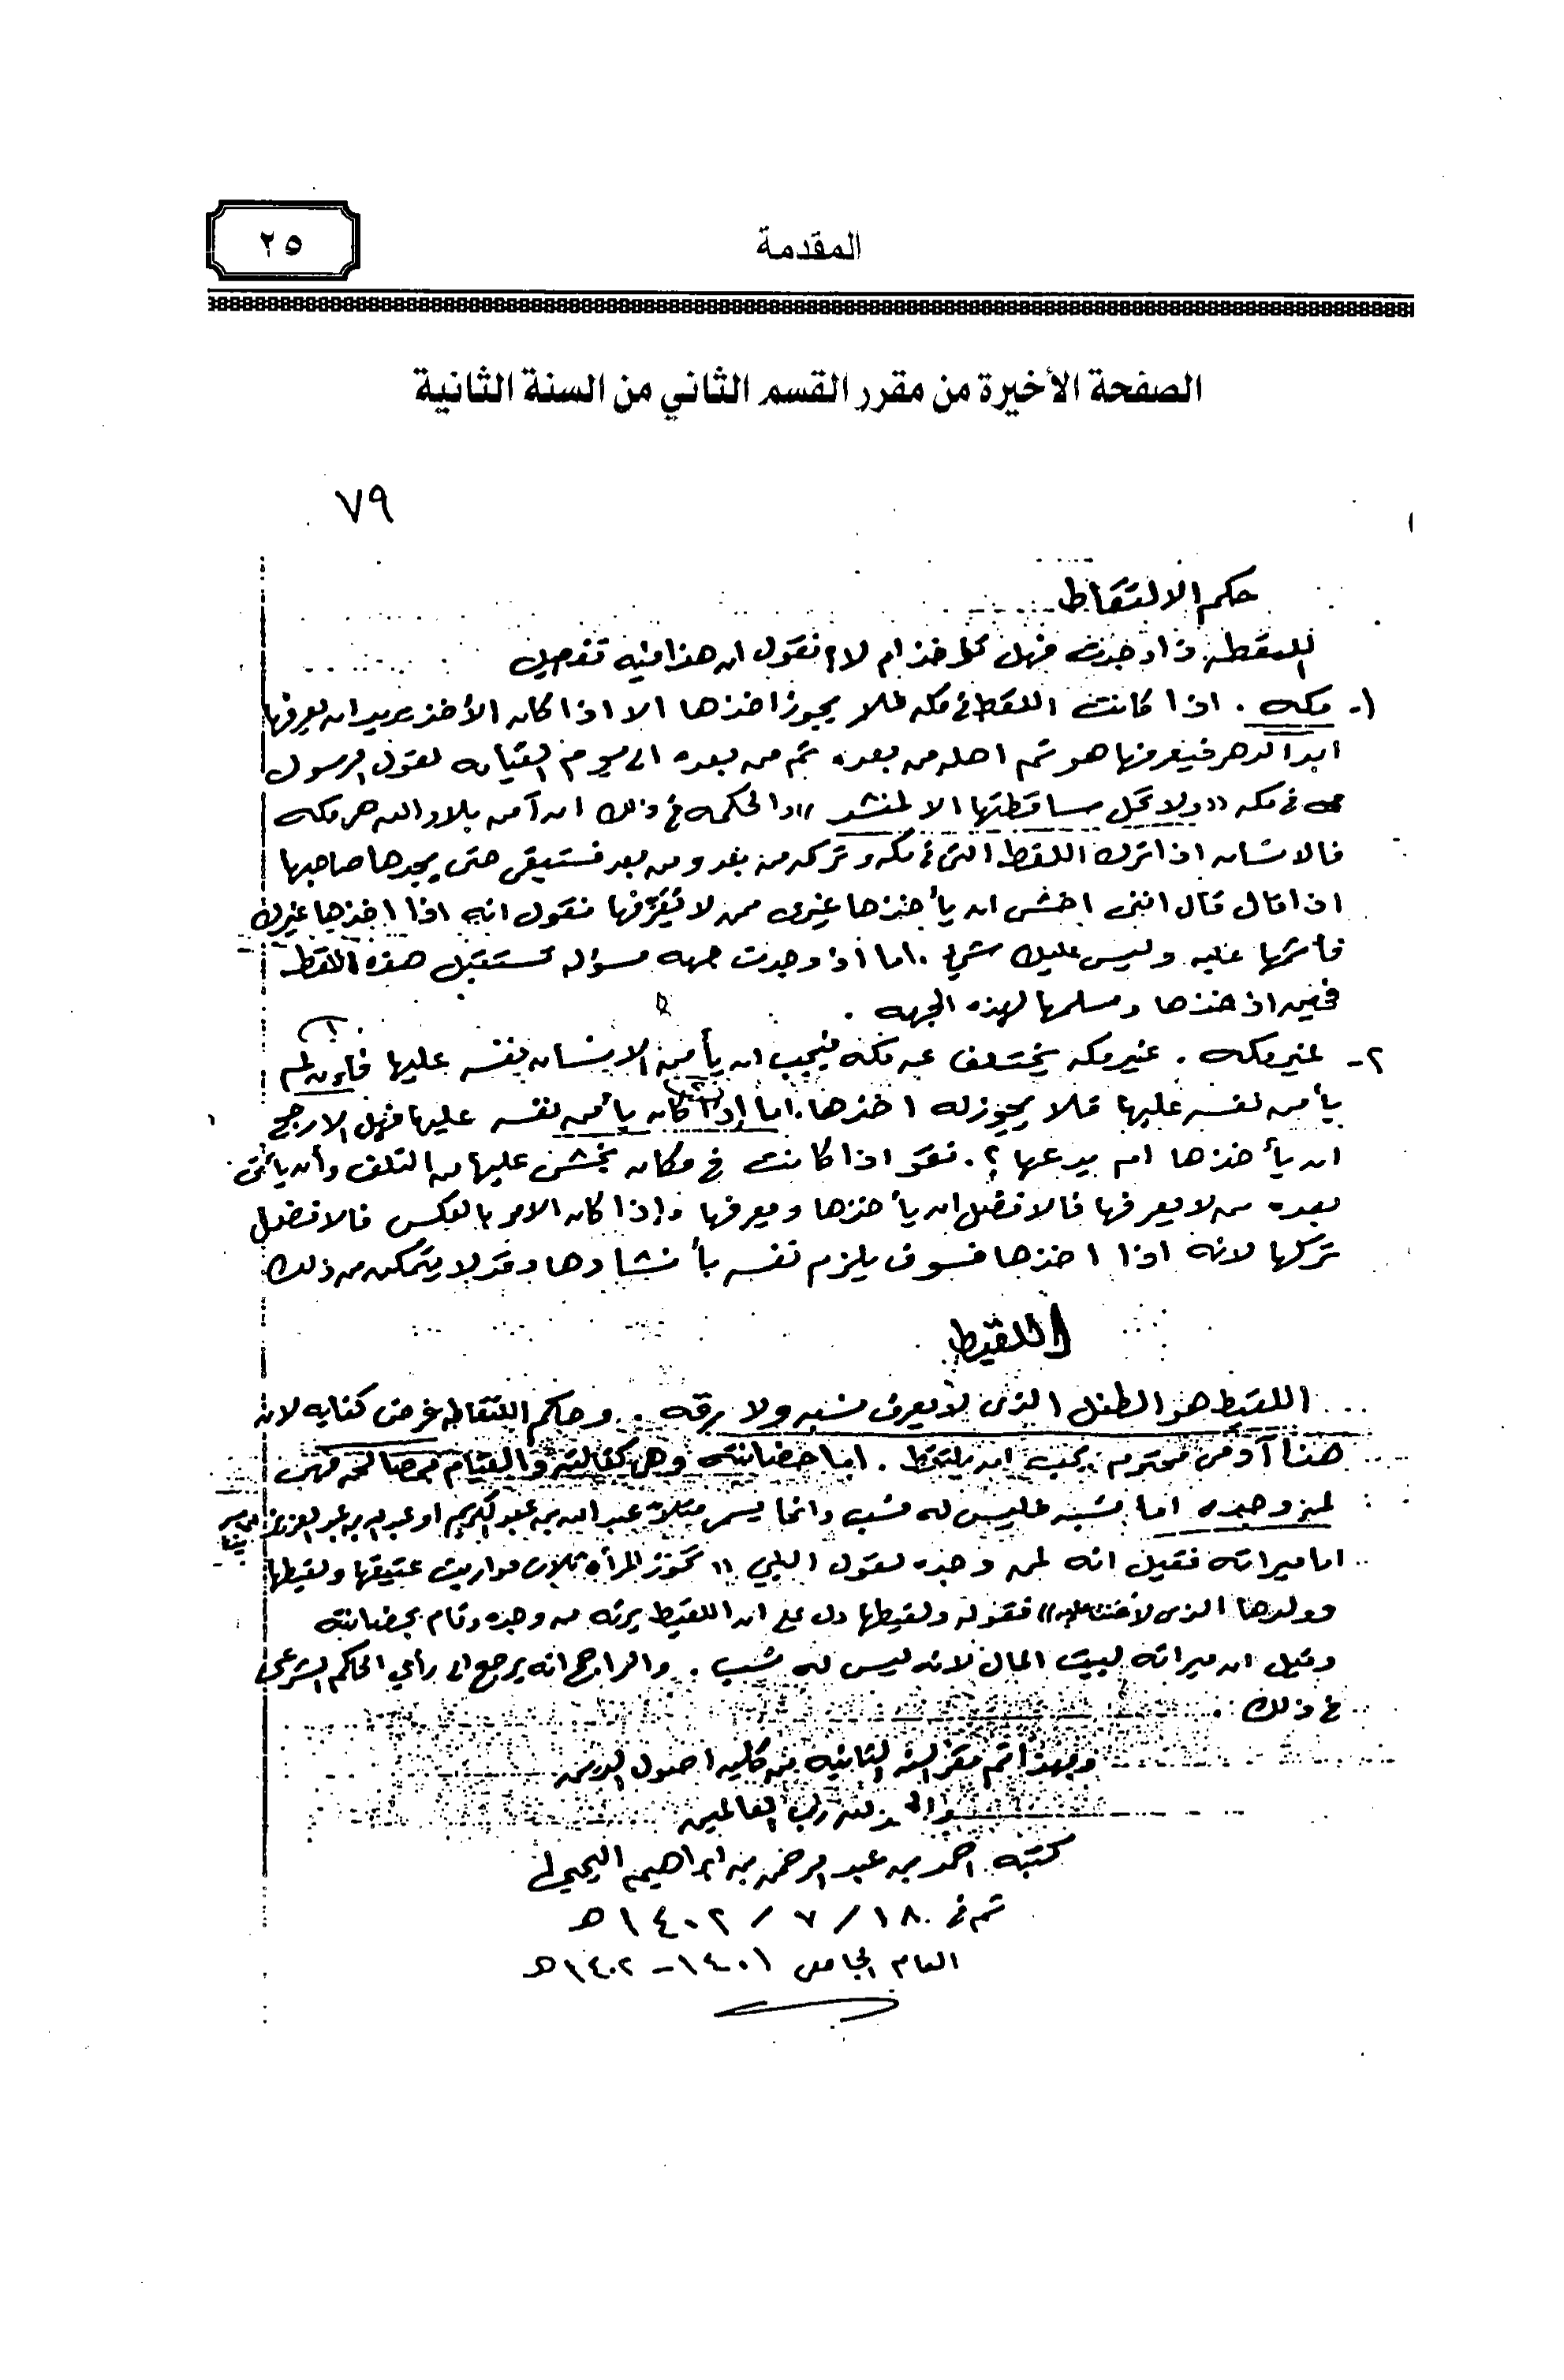 ٢٥
المقدمة
الصفحة الأخيرة من مقرر القسم الثاني من السنة الثانية
٧٩
حكم الالتقاط
اللقطه اذا وجدت فهل تؤخذ ام لا؟ نقول ان هذا فيه تفصيل
١- مكه . اذا كانت اللقطه في مكه فلا يجوز اخذها الا اذا كان الأخذ يريد ان يعرفها
ابد الدهر فيعرفها هو ثم اهله من بعده ثم من بعده الى يوم القيامه لقول الرسول
في مكه ((ولا تحل ساقطتها الا لمنشد)) والحكمه في ذلك ان آمن بلاد الله هي مكه
فالانسان اذا ترك اللقطه التي في مكه وتركه من بعد ومن بعد فستبقى حتى يجدها صاحبها
اذا قال قائل انني اخشى ان يأخذها غيري ممن لا يُعَرِّفها نقول انه اذا اخذها غيرك
فاثمها عليه وليس عليك شيء . اما اذا وجدت جهه مسؤله تستقبل هذه اللقطه
فخذها وسلمها لهذه الجهه .
٢- غير مكه . غير مكه يختلف عن مكه فيجب ان يأمن الانسان نفسه عليها فإن لم
يأمن نفسه عليها فلا يجوز له اخذها. اما إذا كان يأمن نفسه عليها فهل الارجح
ان يأخذها ام يدعها ؟ . نقول اذا كانت في مكان يخشى عليها من التلف وأن يأتي
بعده من لا يعرفها فالافضل ان يأخذها ويعرفها وإذا كان الامر بالعكس فالافضل
تركها لانه اذا اخذها فسوف يلزم نفسه بأنشادها وقد لا يتمكن من ذلك
اللقيط
اللقيط هو الطفل الذي لا يعرف نسبه ولا رقه . وحكم التقاطه فرض كفايه لانه
هنا آدمي محترم يجب ان يلتقط . اما حضانته وهي كفالته والقيام بمصالحه فهي
لمن وجده اما نسبه فليس له نسب وانما يسمى مثلاً عبد الله بن عبد الكريم او عبد الله بن عبد العزيز
اما ميراثه فقيل انه لمن وجده لقول النبي (( تحوز المرأة ثلاث مواريث عتيقها ولقيطها
وولدها الذي لاعنت عليه)) فقوله ولقيطها دل على ان اللقيط يرثه من وجده وقام بحضانته
وقيل ان ميراثه لبيت المال لانه ليس له نسب . والراجح انه يرجع الى رأي الحاكم الشرعي
في ذلك .
وبهذا تم مقرر السنه الثانيه من كليه اصول الدين
والحمد لله رب العالمين
كتبه احمد بن عبد الرحمن بن ابراهيم اليحيى
تم في ١٨ / ٧ / ١٤٠٢ هـ
العام الجامعي ١٤٠١ - ١٤٠٢ هـ